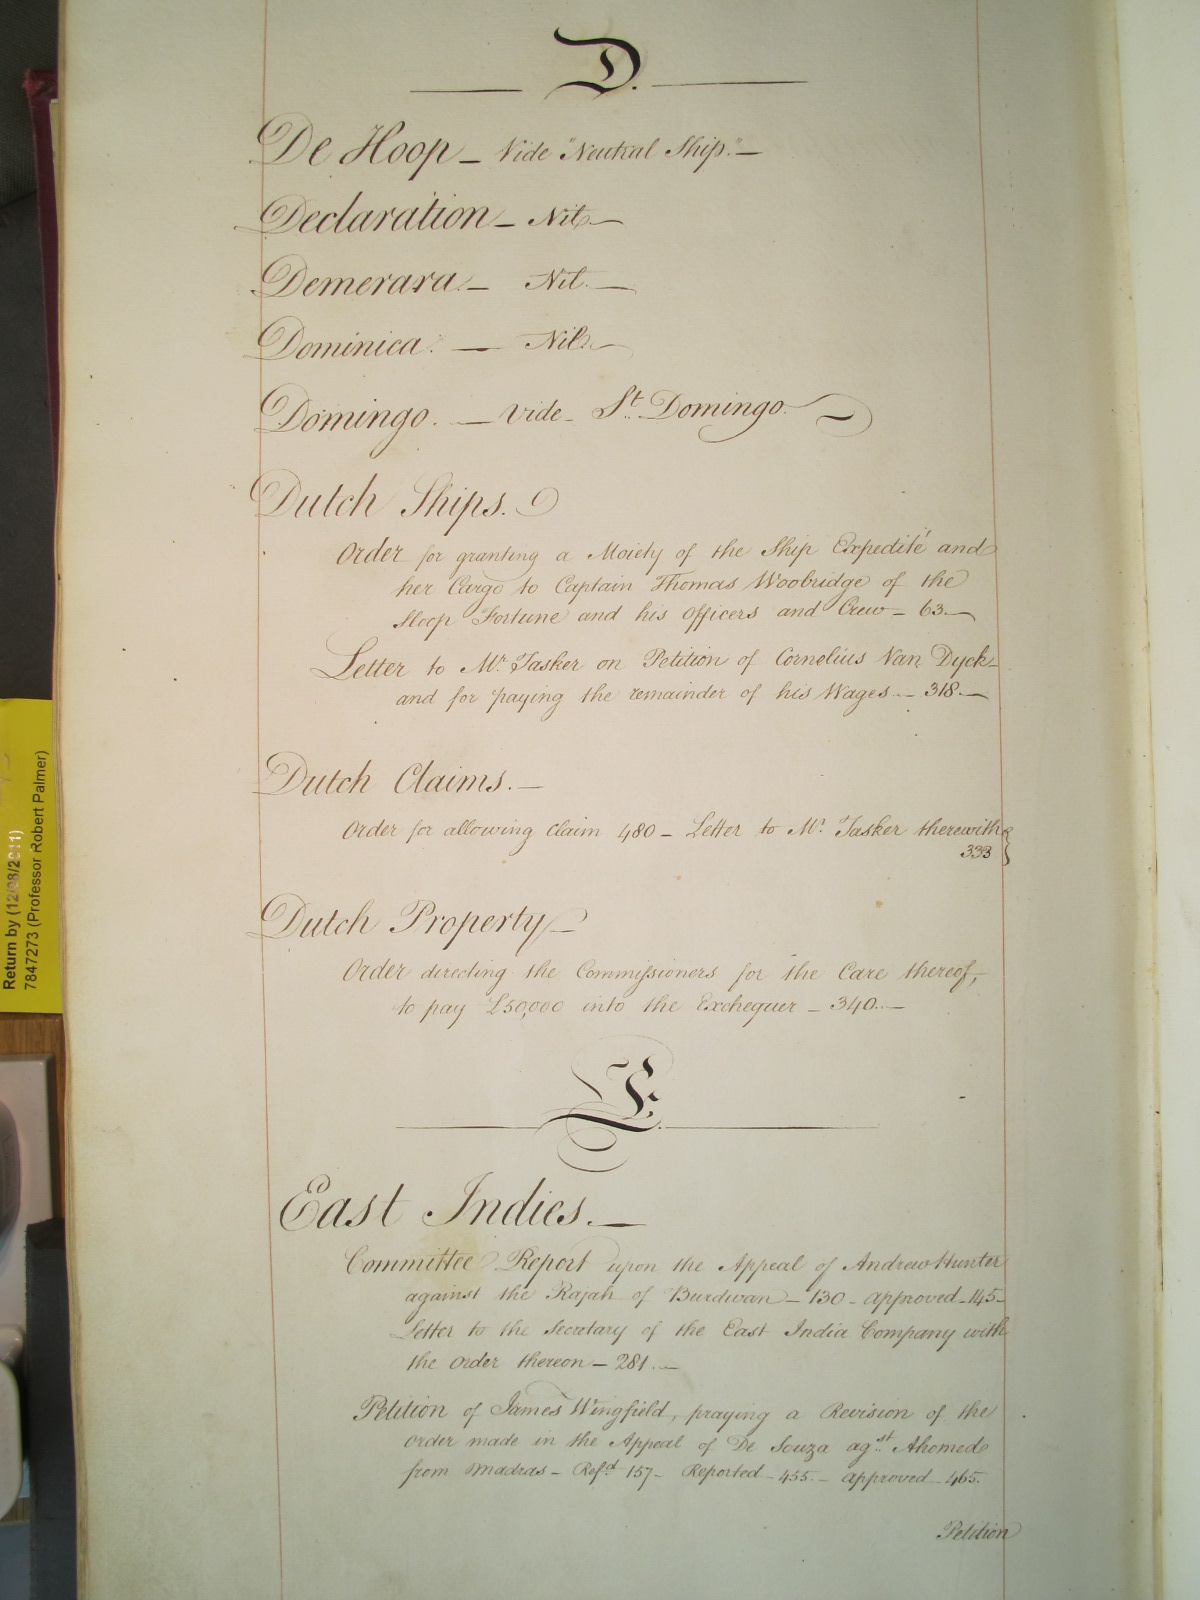 D.
De Hoop — Vide "Neutral Ship." —
Declaration — Nil. —
Demerara — Nil. —
Dominica. — Nil. —
Domingo. — vide — St. Domingo.
Dutch Ships.
Order for granting a Moiety of the Ship Expedité and
her Cargo to Captain Thomas Woobridge of the
Sloop Fortune and his Officers and Crew — 63. —
Letter to Mr. Tasker on Petition of Cornelius Van Dyck
and for paying the remainder of his Wages — 318. —
Dutch Claims. —
Order for allowing claim 480 — Letter to Mr. Tasker therewith }
333
Dutch Property —
Order directing the Commissioners for the Care thereof,
to pay £50,000 into the Exchequer — 340. —
E.
East Indies. —
Committee Report upon the Appeal of Andrew Hunter
against the Rajah of Burdwan — 130 — approved — 145 —
Letter to the Secretary of the East India Company with
the order thereon — 281. —
Petition of James Wingfield, praying a Revision of the
order made in the Appeal of De Souza agst. Ahomed
from Madras — Refd. 157 — Reported — 455. — approved — 465.
Petition
Return by (12/08/2011)
7847273 (Professor Robert Palmer)